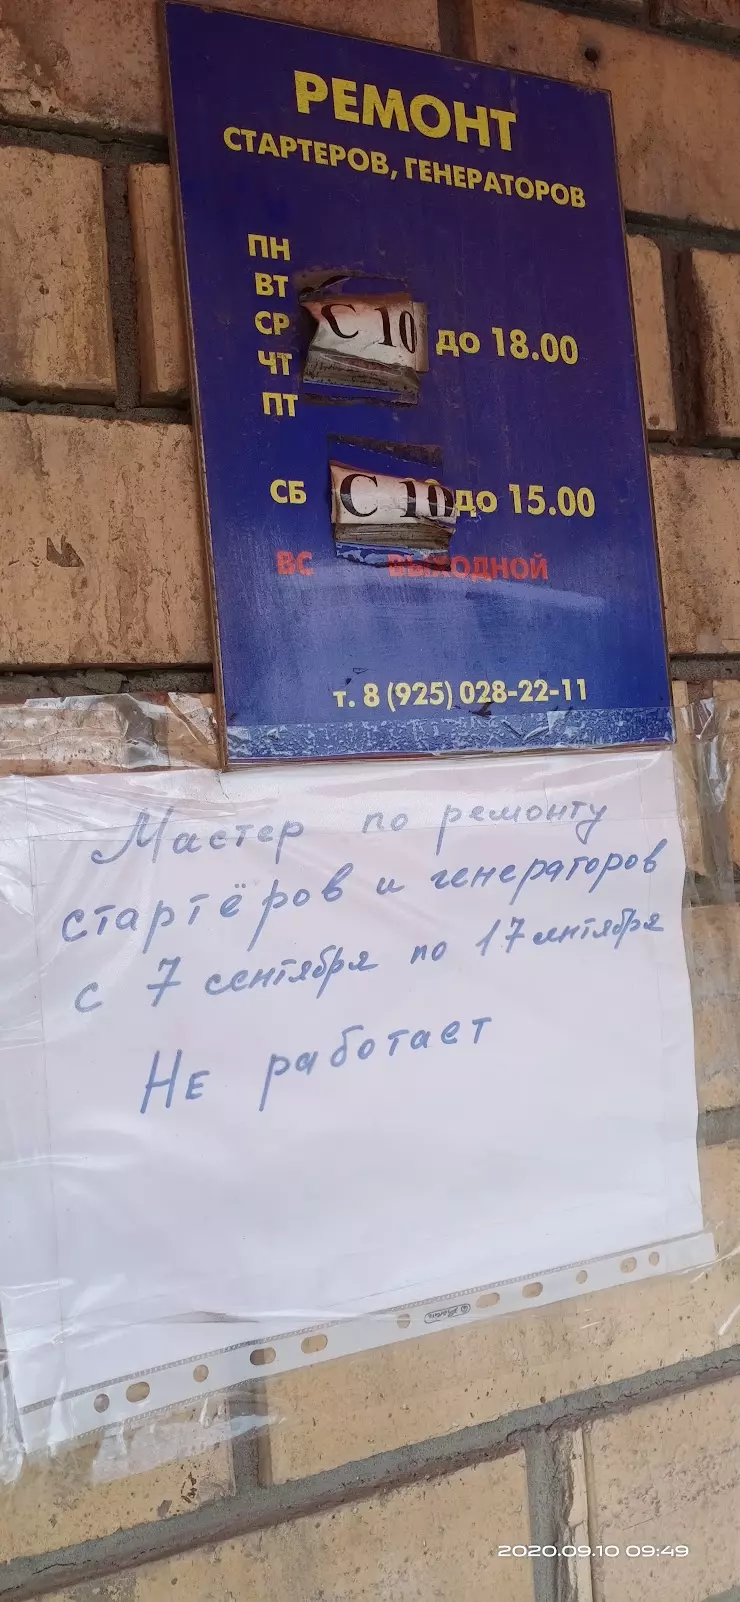 РЕМОНТ
СТАРТЕРОВ, ГЕНЕРАТОРОВ
ПН
ВТ
СР
ЧТ
ПТ
С 10 до 18.00
СБ С 10 до 15.00
ВС ВЫХОДНОЙ
т. 8 (925) 028-22-11
Мастер по ремонту
стартёров и генераторов
с 7 сентября по 17 сентября
Не работает
2020.09.10 09:49